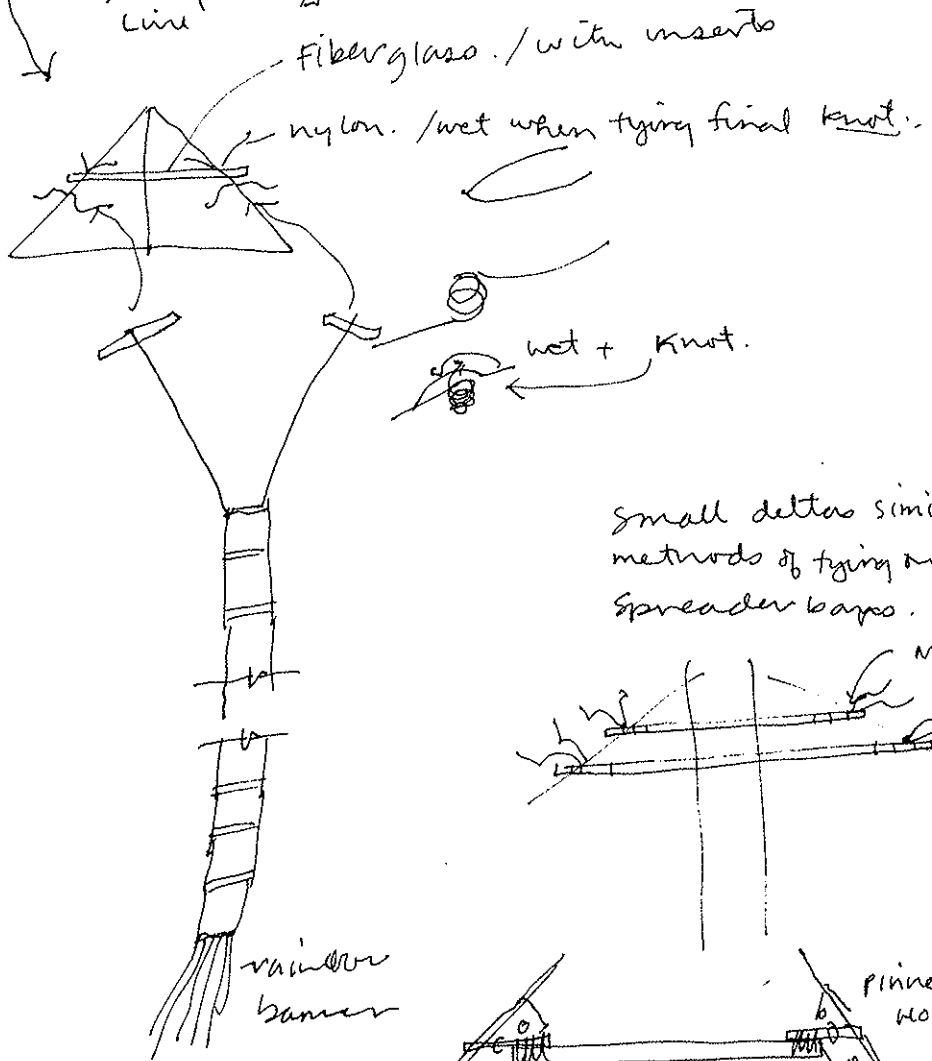 Line
Fiberglass. / with inserts
nylon. / wet when tying final knot.
wet + Knot.
small deltas simi
methods of tying
spreader bars.
N
rainbow
banner
pinne